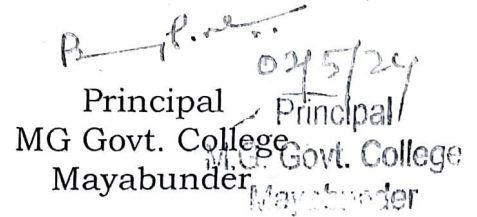 02/5/24
Principal
MG Govt. College
Mayabunder
Principal
M.G. Govt. College
Mayabunder